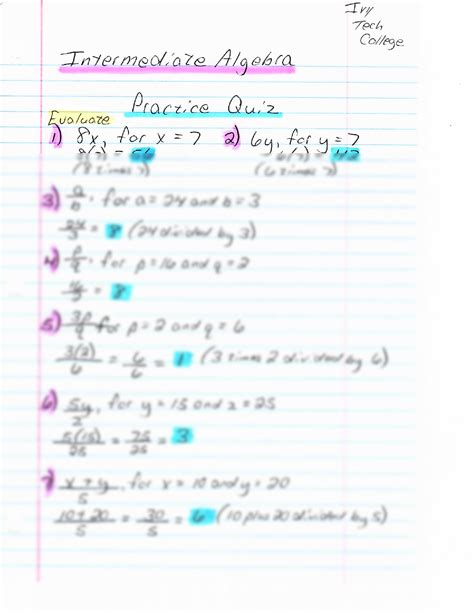 Ivy
Tech
College
Intermediate Algebra
Practice Quiz
Evaluate
1) 8x, for x = 7 2) 6y, for y = 7
8(7) = 56 6(7) = 42
(8 times 7) (6 times 7)
3) a/b, for a = 24 and b = 3
24/3 = 8 (24 divided by 3)
4) p/q, for p = 16 and q = 2
= 8
5) 3p/q for p = 2 and q = 6
3(2)/6 = 6/6 = 1 (3 times 2 divided by 6)
6) 5y/z, for y = 15 and z = 25
5(15)/25 = 75/25 = 3
7) x + y/5, for x = 10 and y = 20
10+20/5 = 30/5 = 6 (10 plus 20 divided by 5)